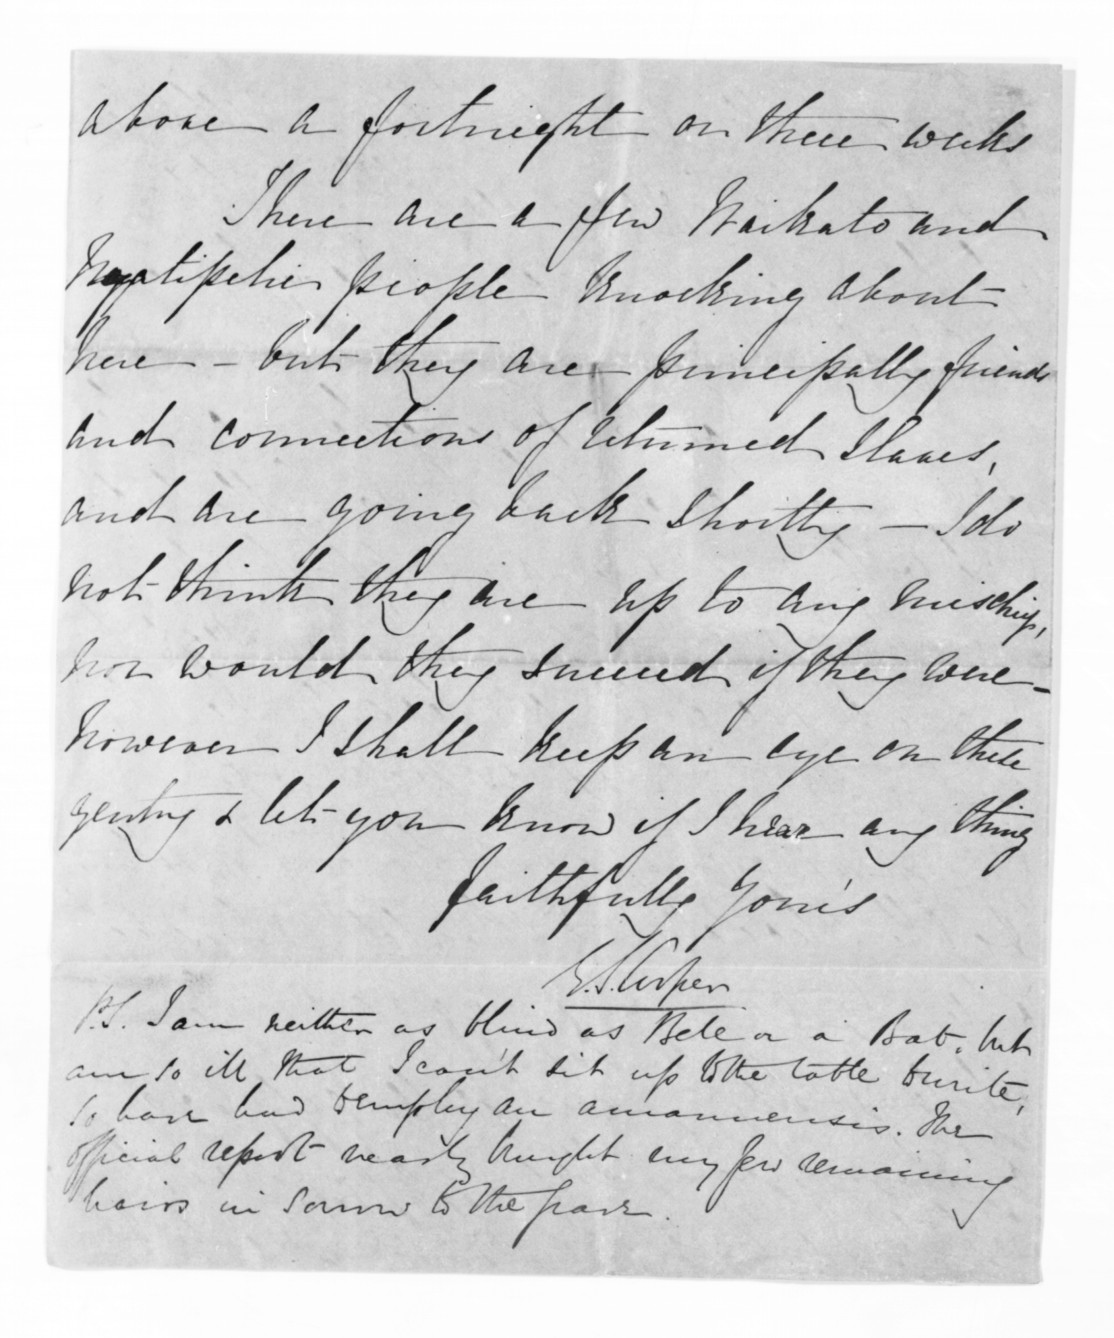 above a fortnight or three weeks
There are a few Waikato and
Ngatipehi people knocking about
here - but they are principally friends
and connections of returned slaves,
and are going back shortly - I do
not think they are up to any mischief,
nor would they succeed if they were -
however I shall keep an eye on these
gentry & let you know if I hear any thing
Faithfully Yours
G.S. Cooper
P.S. I am neither as blind as or a Bat, but
am so ill that I can't sit up to the table to write,
so have had to employ an amanuensis. The
official report nearly brought my few remaining
hairs in sorrow to the grave.